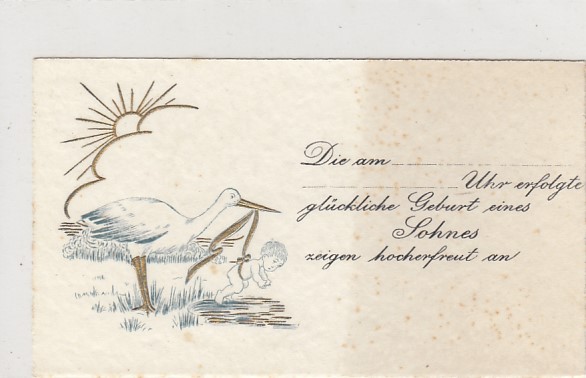 Die am
Uhr erfolgte
glückliche Geburt eines
Sohnes
zeigen hocherfreut an